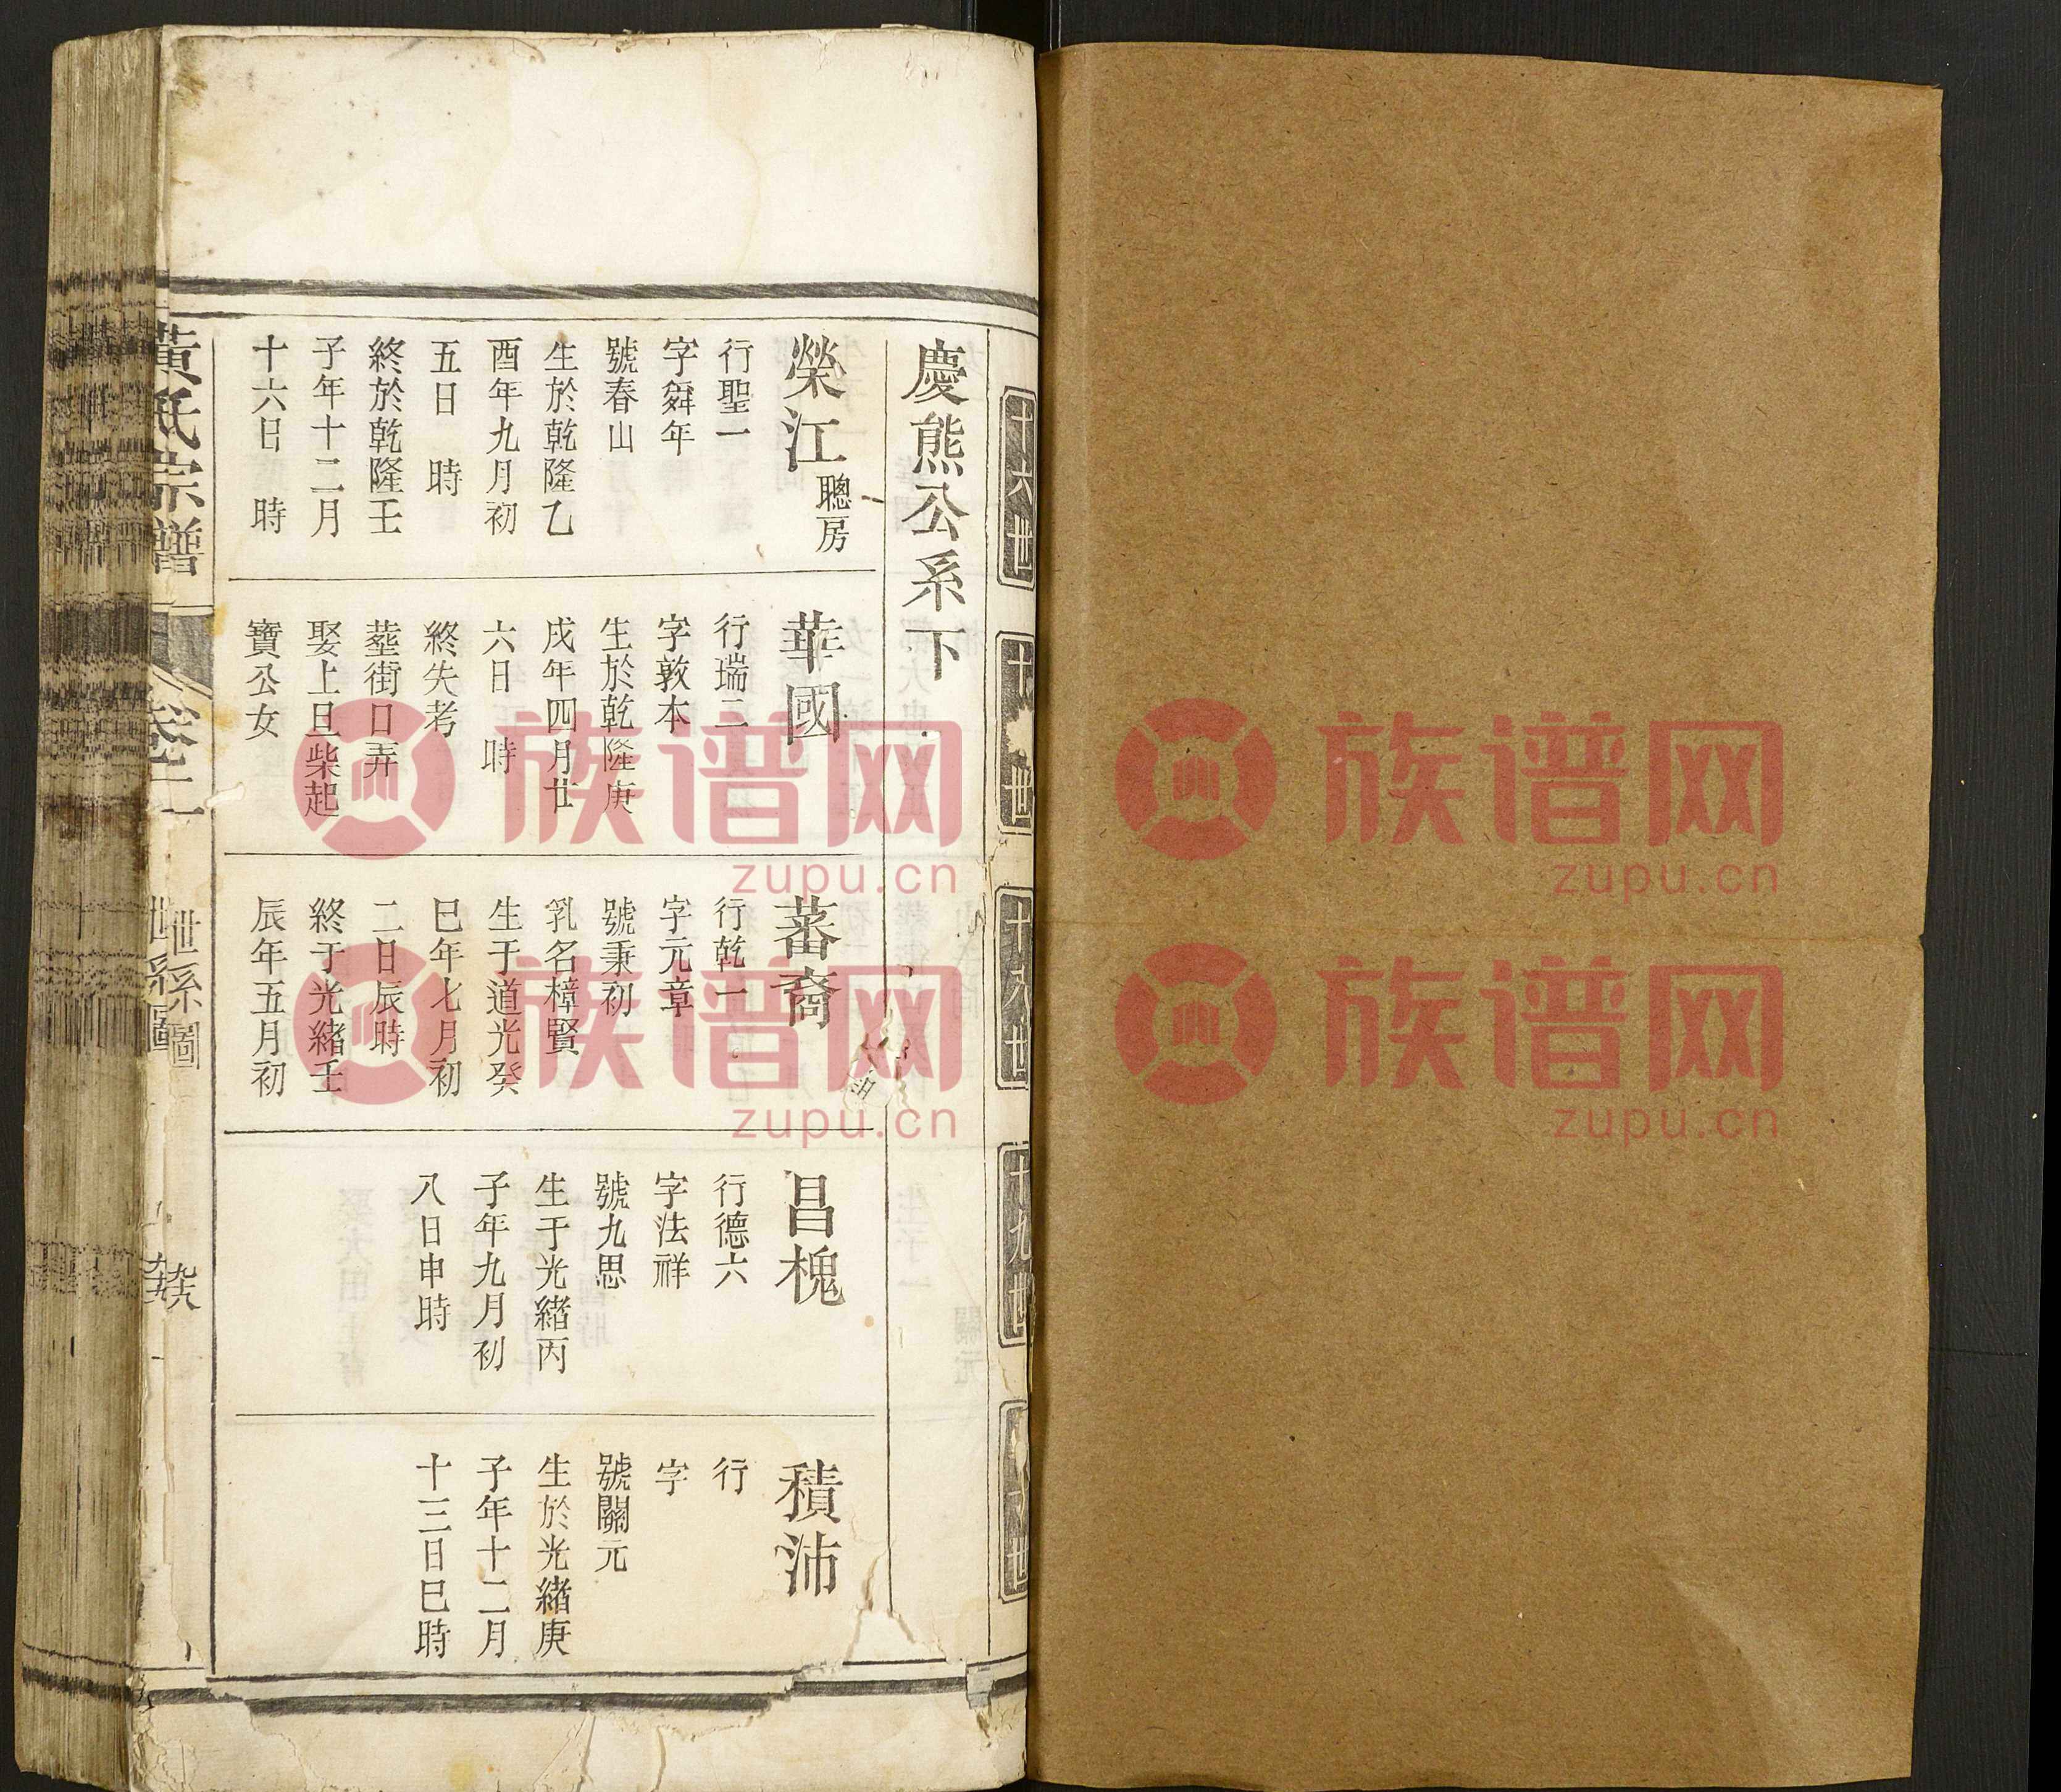 十六世
十
世
十八世
十九世
世
慶熊公系下
榮江 聰房
行聖一
字舜年
號春山
生於乾隆乙
酉年九月初
五日 時
終於乾隆壬
子年十二月
十六日 時
華國
行瑞二
字敦本
生於乾隆庚
戌年四月廿
六日 時
終失考
塟街口弄
娶上旦柴起
寶公女
蕃裔
行乾一
字元章
號秉初
乳名樟賢
生于道光癸
巳年七月初
二日辰時
終于光緒壬
辰年五月初
昌槐
行德六
字法祥
號九思
生于光緒丙
子年九月初
八日申時
積沛
行
字
號關元
生於光緒庚
子年十二月
十三日巳時
黃氏宗譜
卷二
世系圖
族谱网
zupu.cn
族谱网
zupu.cn
族谱网
zupu.cn
族谱网
zupu.cn